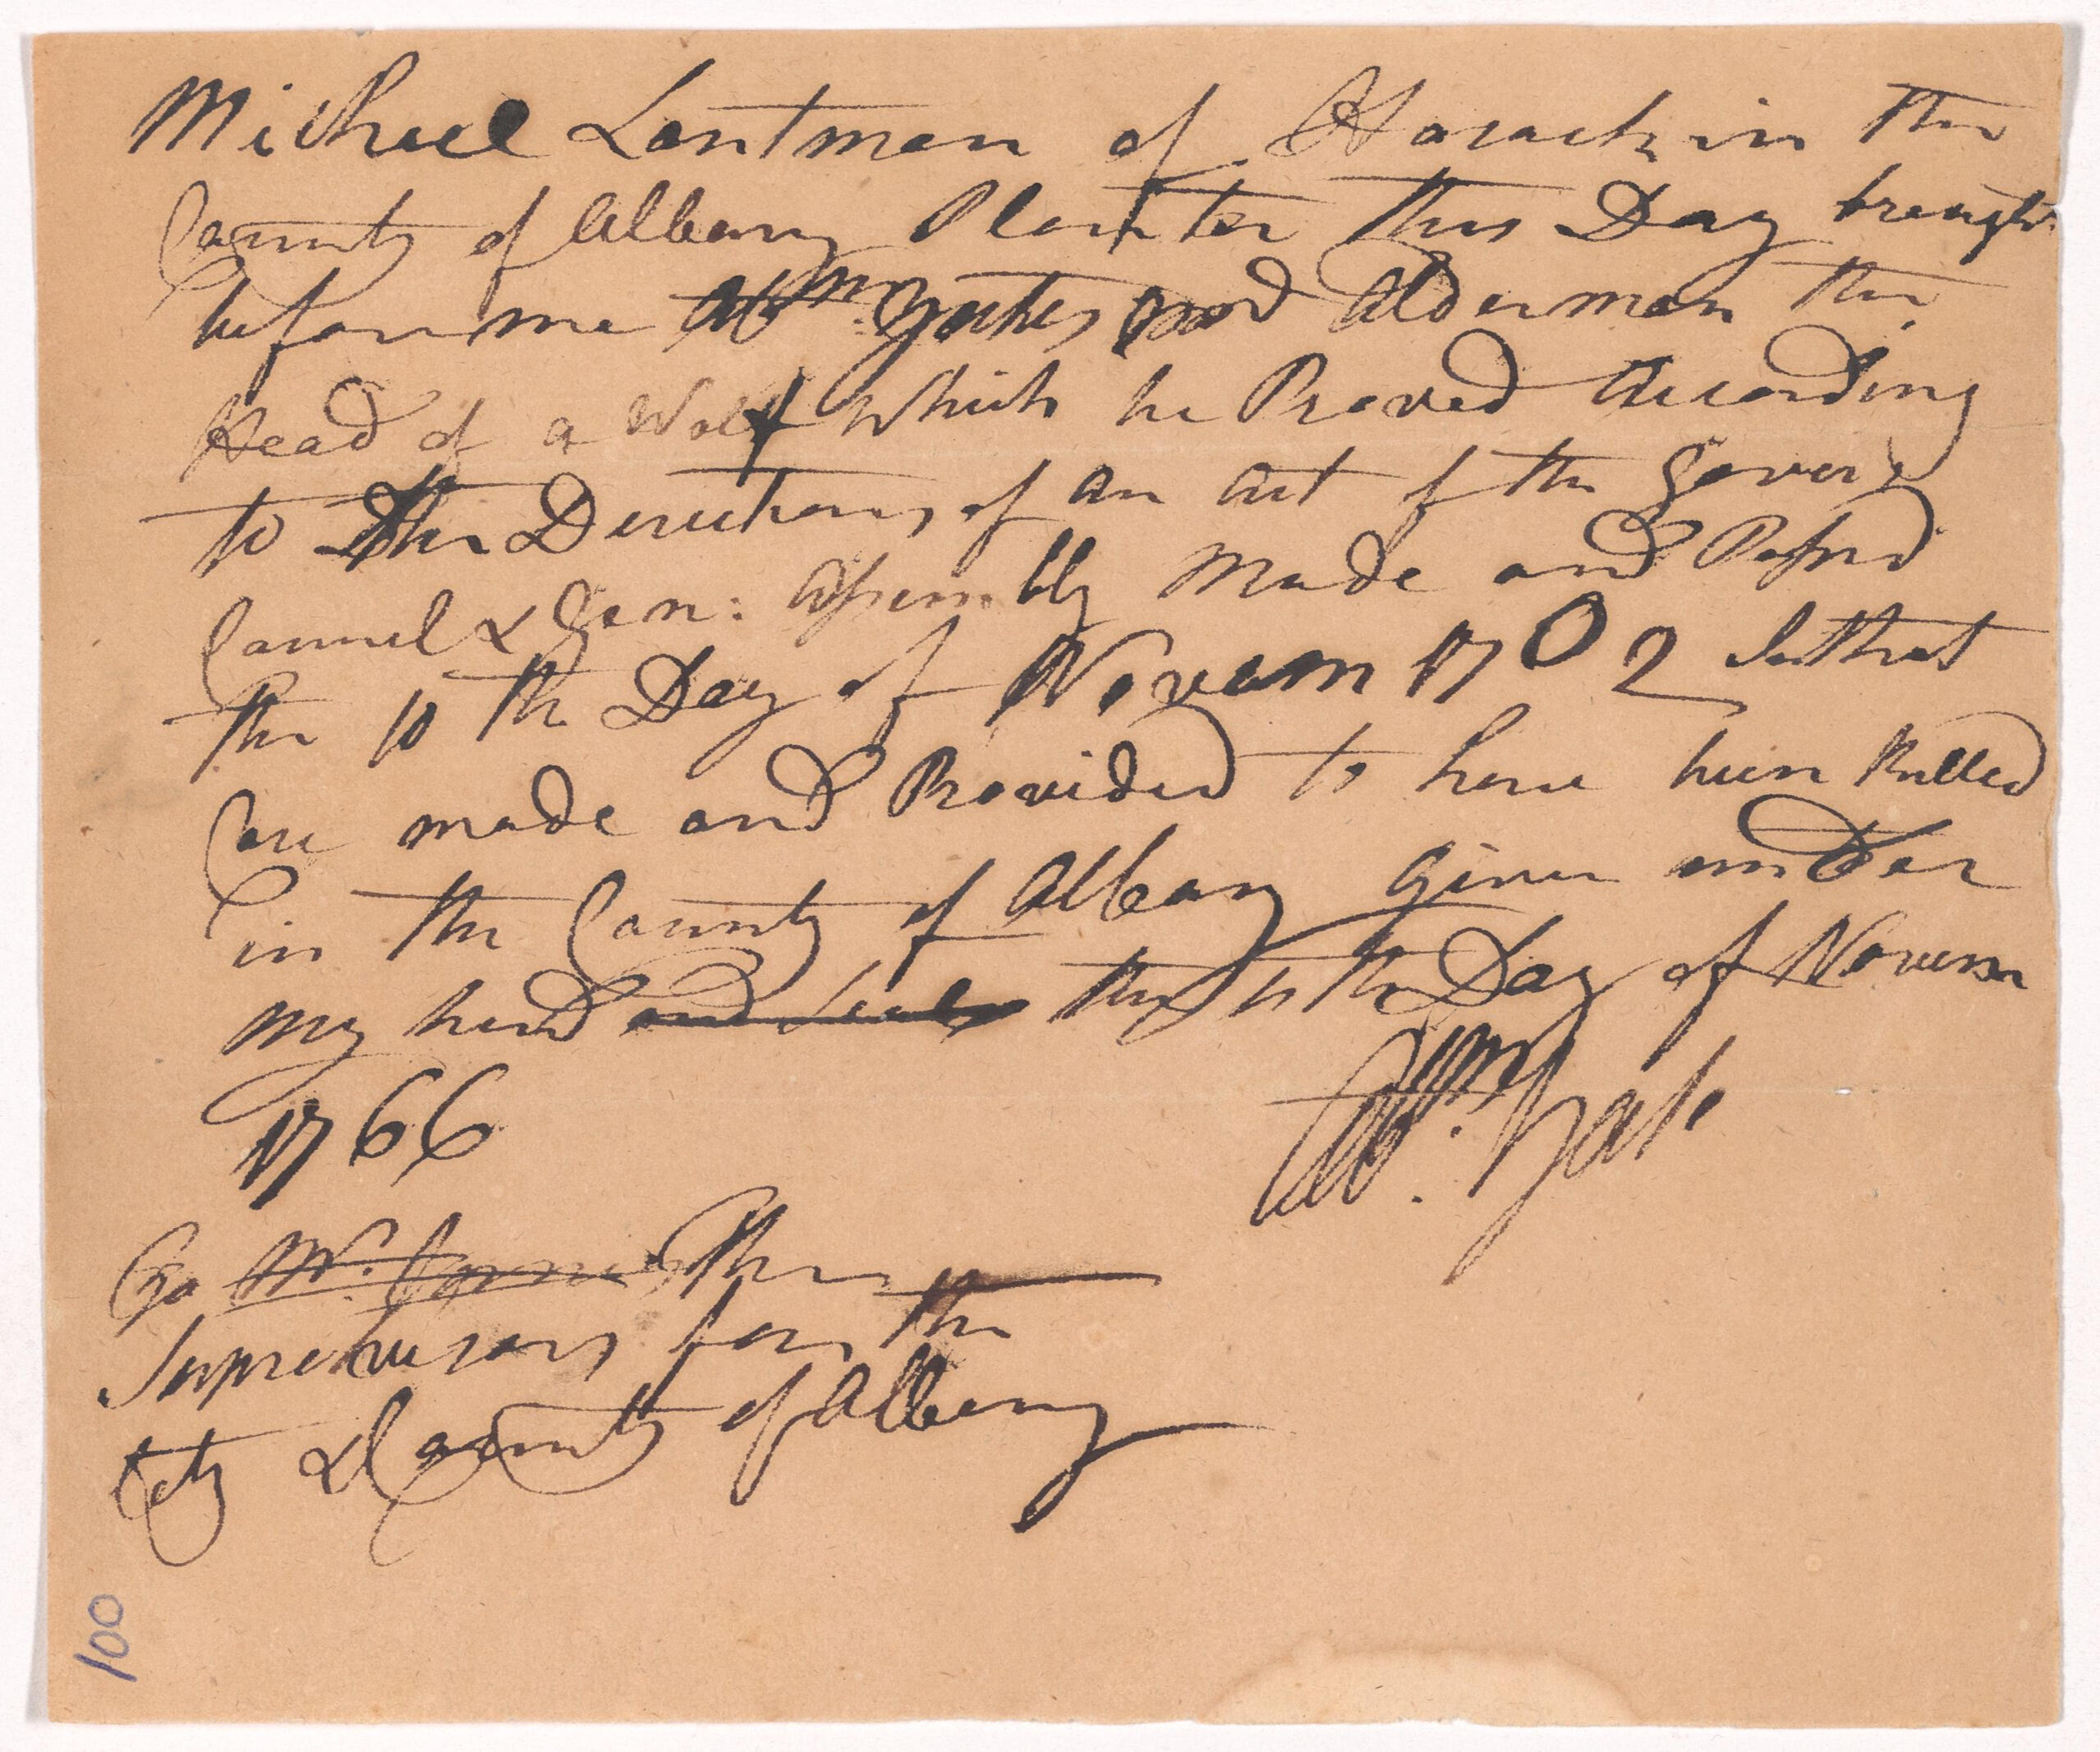 Michael Lantman of Hosack in the
County of Albany Planter this Day brought
before me Abm. Yates Alderman the
Head of a Wolf which he Proved According
to the Directions of an act of the Gover
Council & Gen: Assembly Made and Passed
the 10 th Day of Novem 1702 In that
Case made and Provided to have been Killed
in the County of Albany Given under
my hand and Seale this th Day of Novem
1766
Abm. Yates
To Mr. The
Supervisors for the
City & County of Albany
100